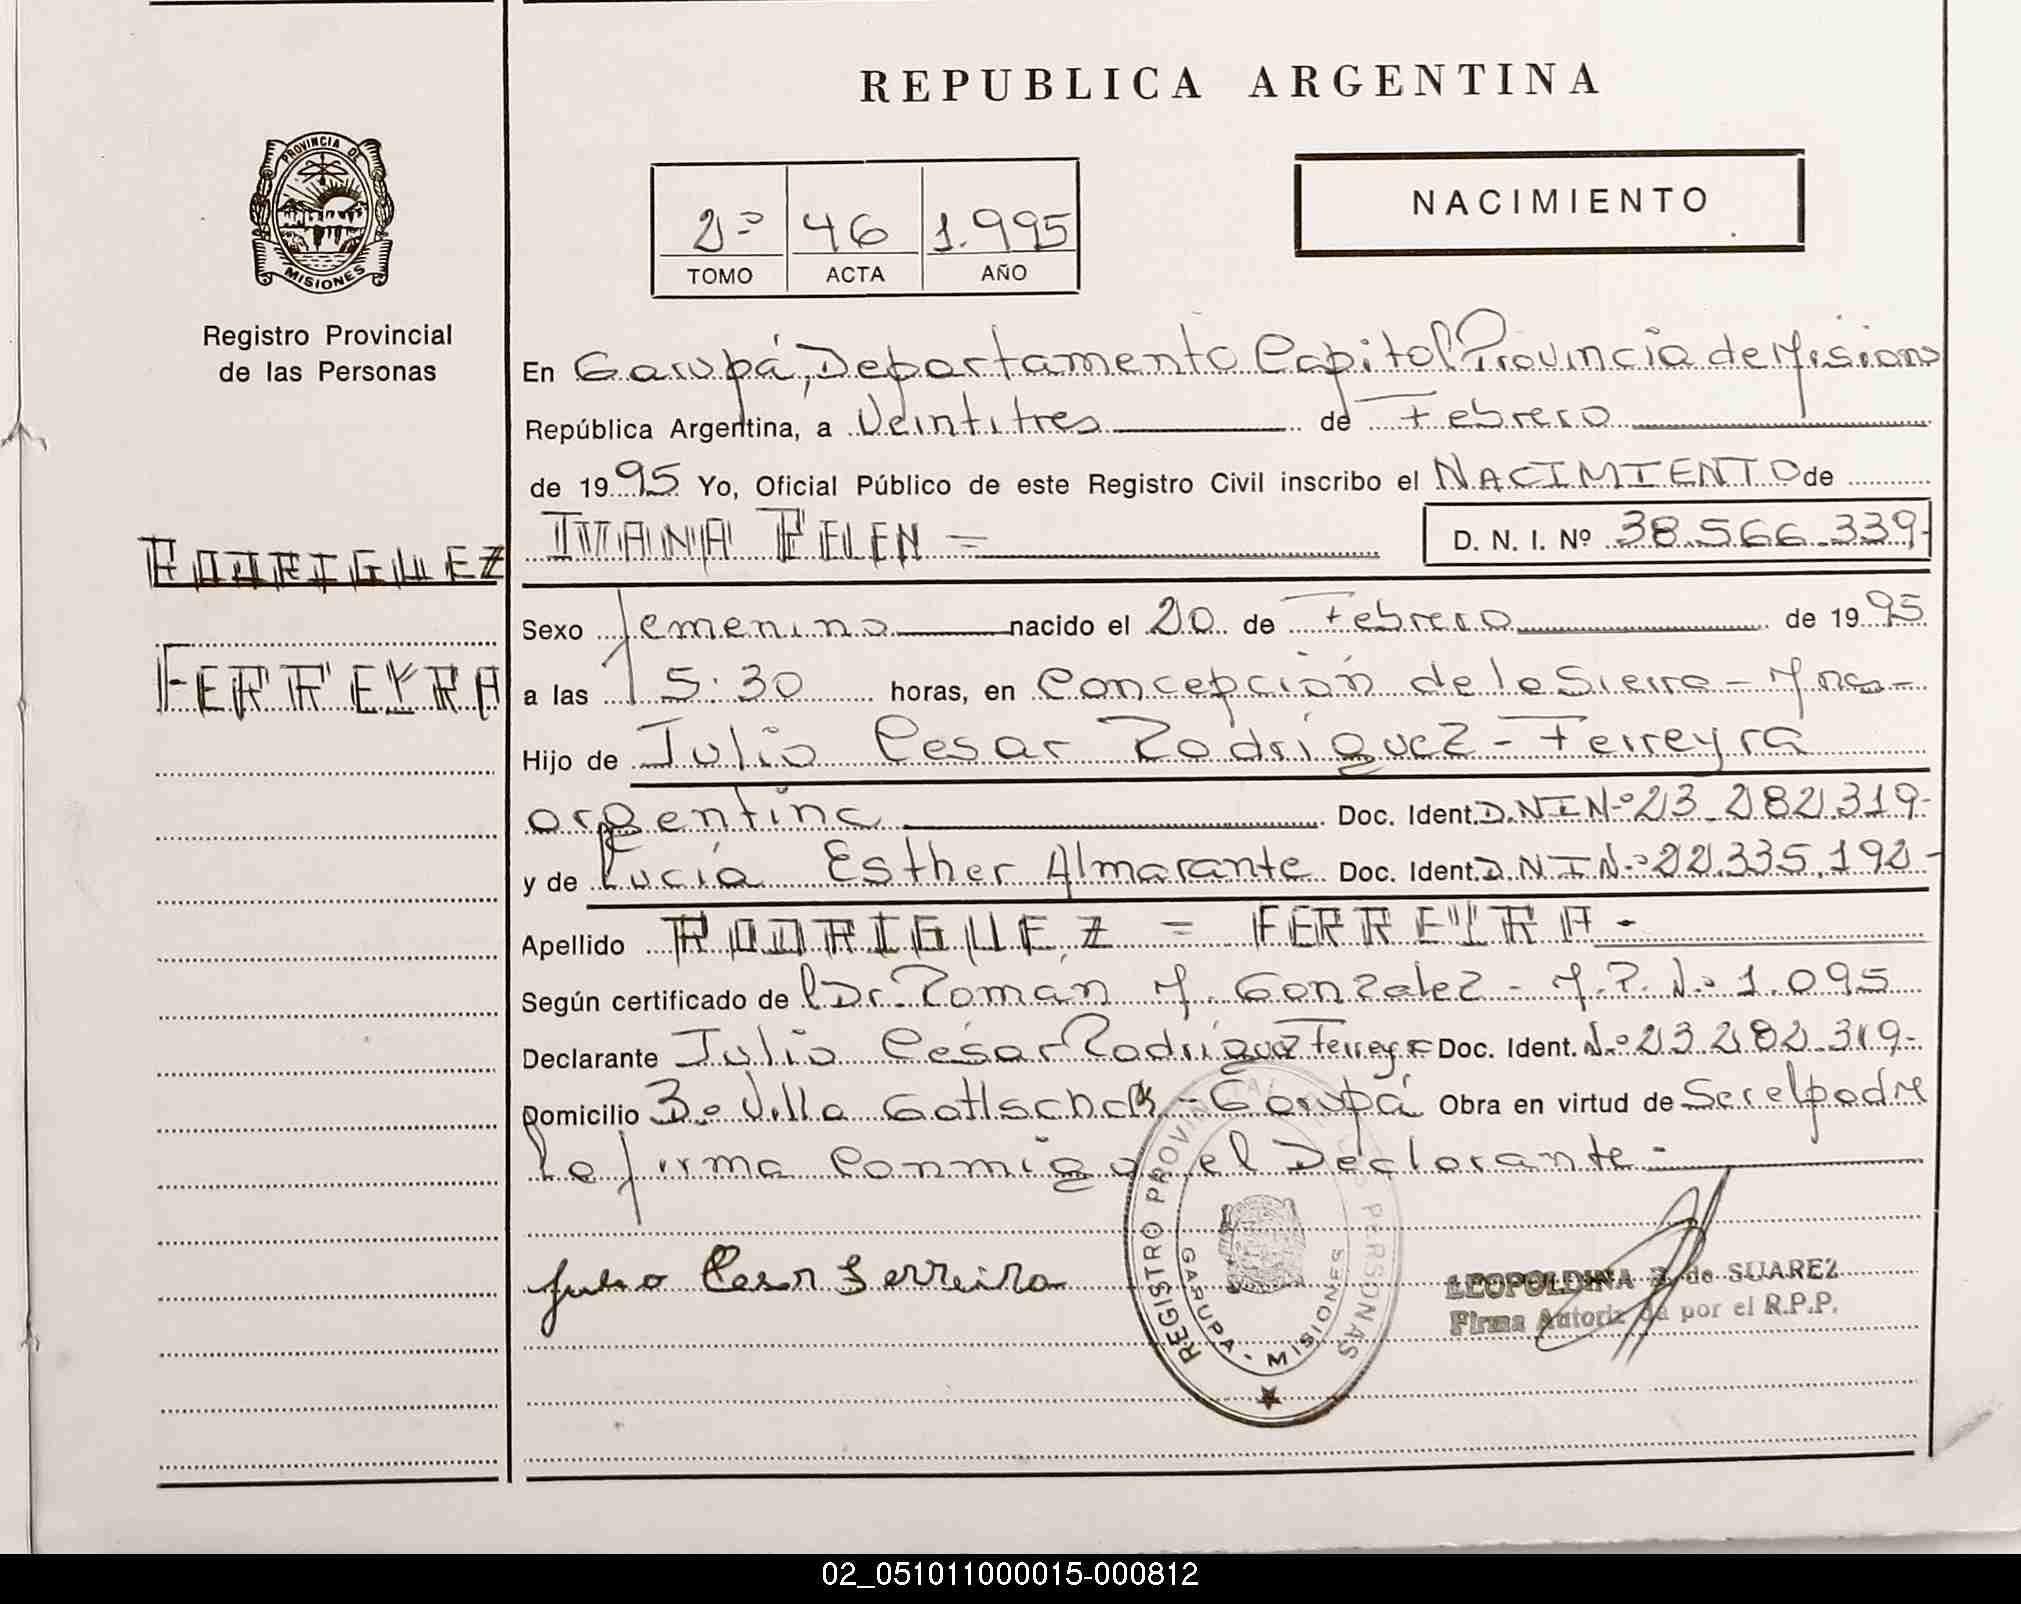 REPUBLICA ARGENTINA
PROVINCIA DE
MISIONES
Registro Provincial
de las Personas
2º 46 1.995
TOMO ACTA AÑO
NACIMIENTO
En Garupá, Departamento Capital Provincia de Misiones
República Argentina, a Veintitres de Febrero
de 1995 Yo, Oficial Público de este Registro Civil inscribo el NACIMIENTO de
IVANA BELEN = D. N. I. Nº 38.566.339-
RODRIGUEZ
FERREYRA
Sexo femenino nacido el 20 de Febrero de 1995
a las 15:30 horas, en Concepción de la Sierra - Mnes-
Hijo de Julio Cesar Rodriguez - Ferreyra
argentina Doc. Ident. D.N.I Nº 23.282.319-
y de Lucía Esther Almarante Doc. Ident. D.N.I Nº 22.335.192-
Apellido RODRIGUEZ = FERREYRA -
Según certificado de Dr. Román M. Gonzalez - M.P. Nº 1.095
Declarante Julio César Rodríguez Ferreyra Doc. Ident. Nº 23.282.319-
Domicilio Bº Villa Gottschalk - Garupá Obra en virtud de Ser el padre
La firma conmigo el Declarante -
Julio Cesar Ferreira
REGISTRO PROVINCIAL PERSONAS
GARUPA - MISIONES
LEOPOLDINA de SUAREZ
Firma Autorizada por el R.P.P.
02_051011000015-000812